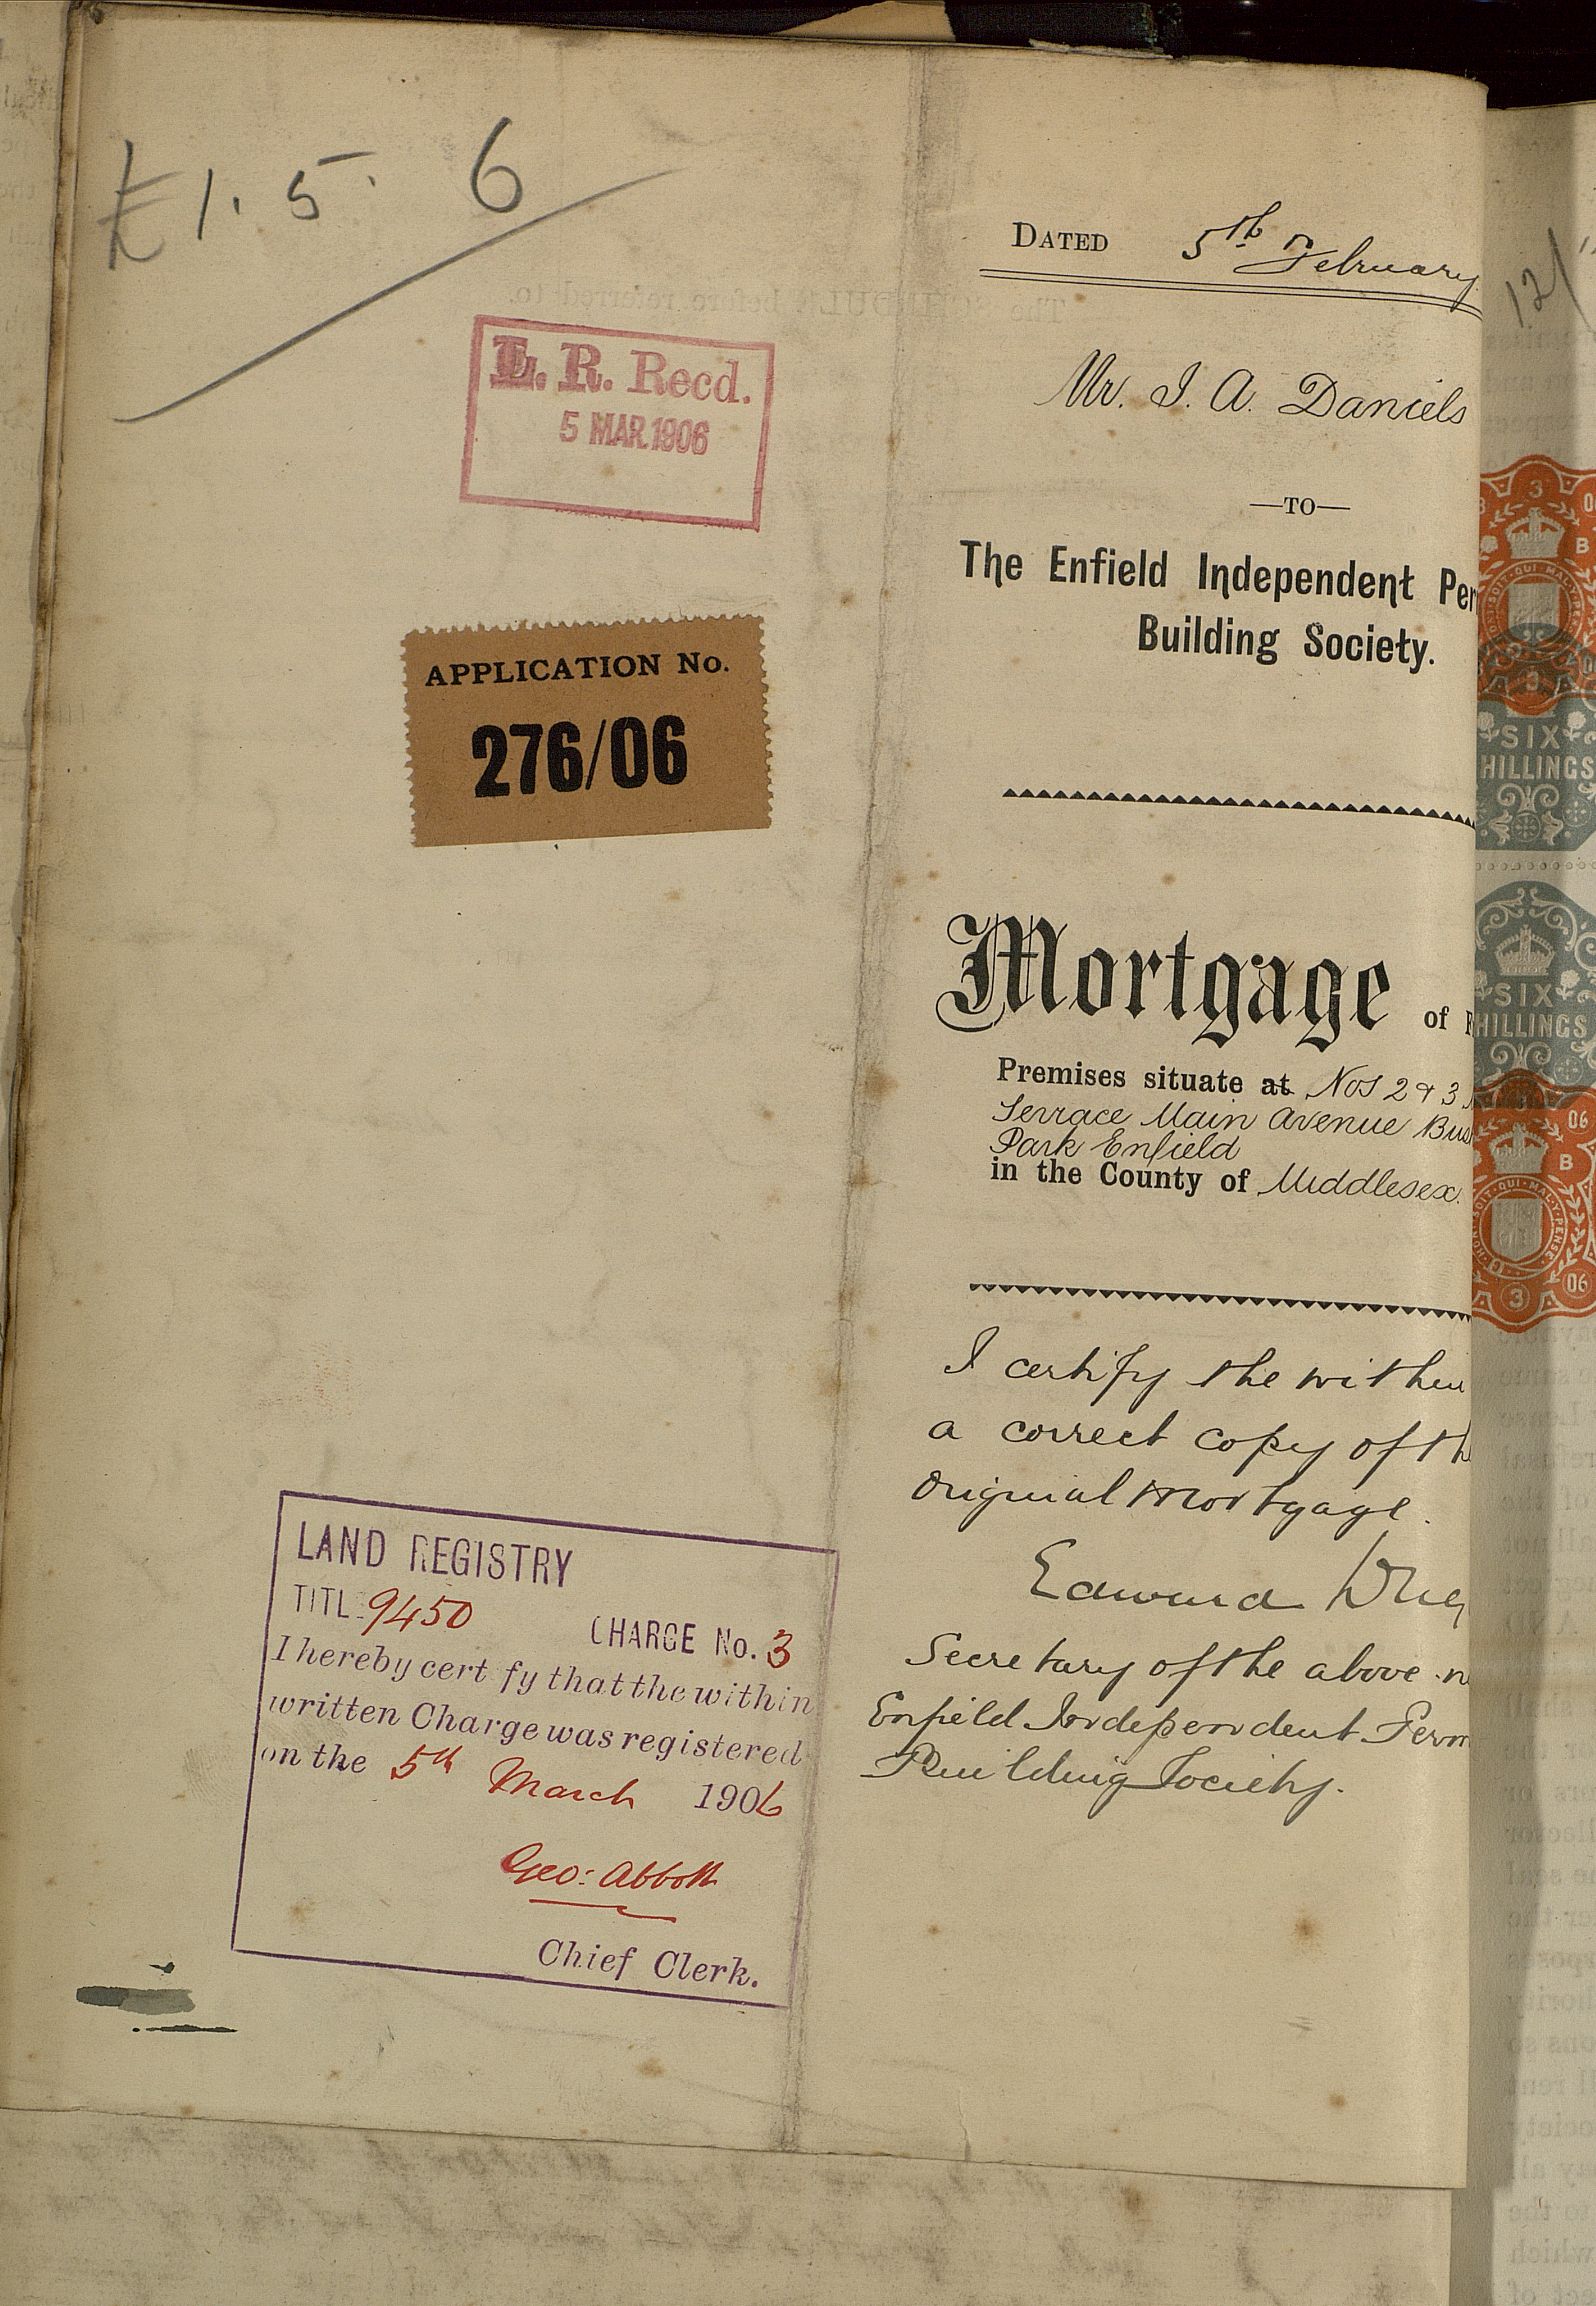 £1. 5. 6
L. R. Recd.
5 MAR. 1906
APPLICATION No.
276/06
LAND REGISTRY
TITL 9450 CHARGE No. 3
I hereby cert fy that the within
written Charge was registered
on the 5th March 1906
Geo: Abbott
Chief Clerk.
DATED 5th February
Mr. I. A. Daniels
—TO—
The Enfield Independent Per
Building Society.
Mortgage of F
Premises situate at Nos 2 & 3
Terrace Main Avenue Bus
Park Enfield
in the County of Middlesex.
I certify the within
a correct copy of th
original Mortgage.
Edward
Secretary of the above n
Enfield Independent Perm
Building Society.
12/
SIX
HILLINGS
SIX
HILLINGS
06
B
3
06